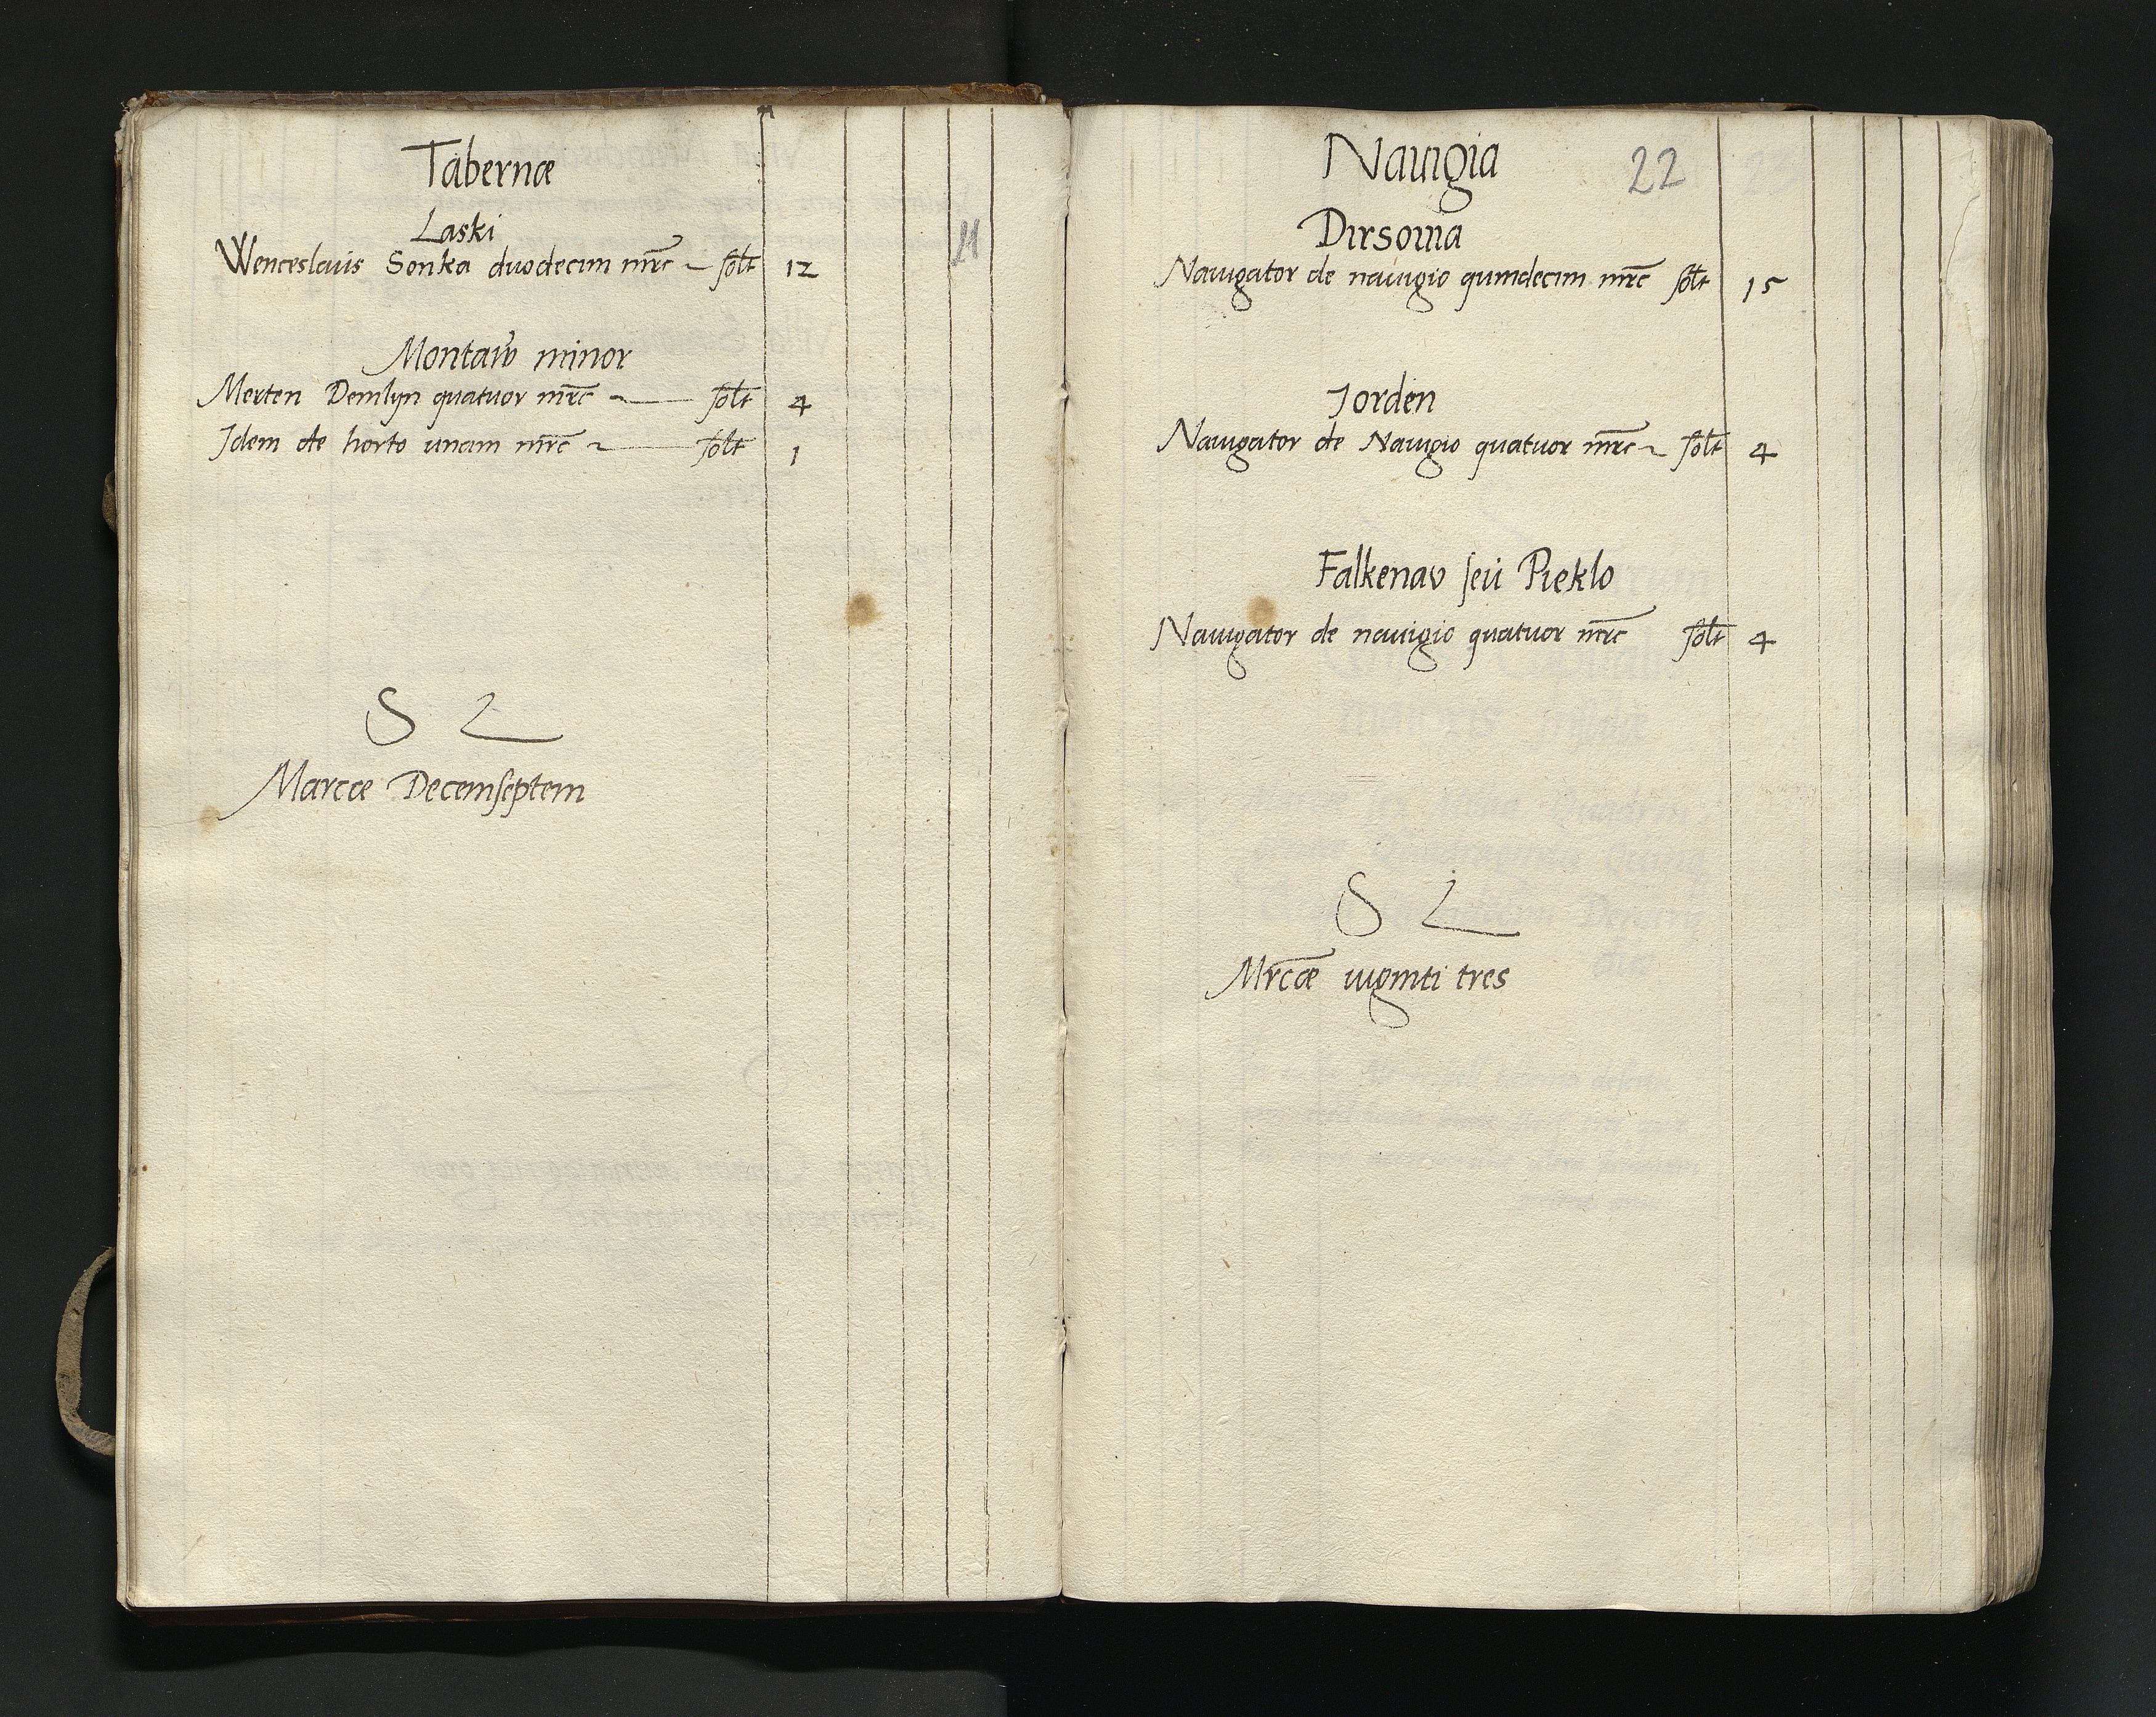 Tabernæ
Laski
Wenceslaüs Sonka duodecim mrc solt 12
Montaw minor
Merten Demlyn quatuor mrc solt 4
Idem de horto unam mrc solt 1
S L
Marcæ Decemseptem
Nauigia 22
Dirsouia
Nauigator de nauigio quindecim mrc solt 15
Jorden
Nauigator de Nauigio quatuor mrc solt 4
Falkenav seü Pieklo
Nauigator de nauigio quatuor mrc solt 4
S L
Mrcæ uiginti tres